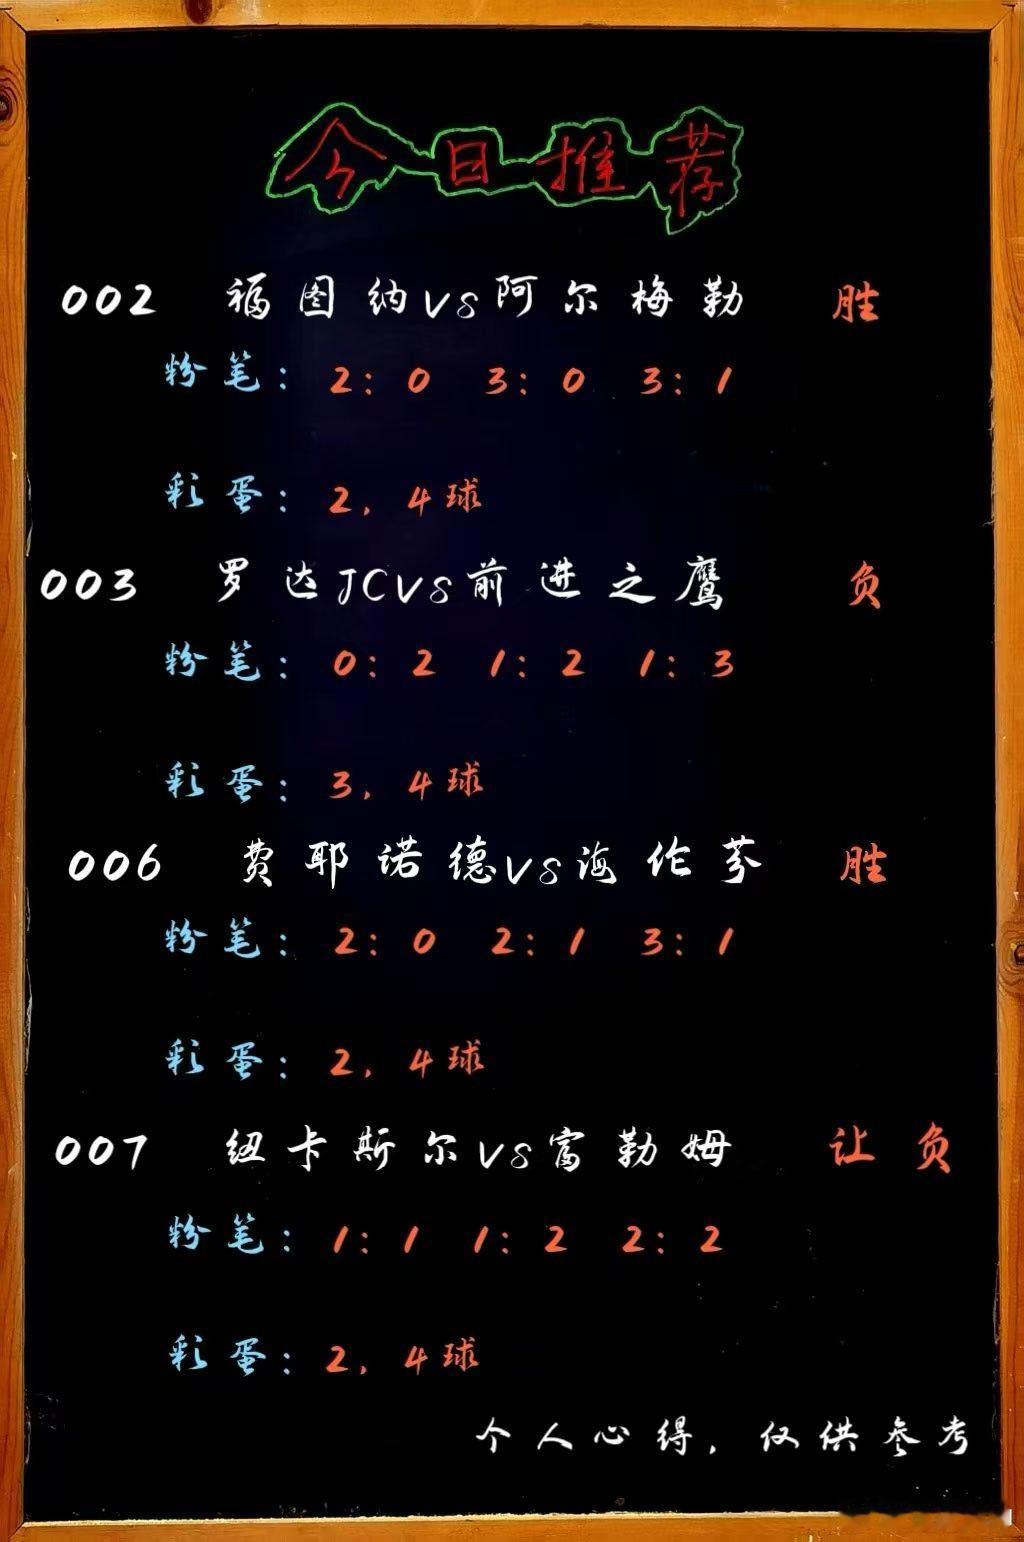 今日推荐
002 福图纳VS阿尔梅勒 胜
粉笔：2：0 3：0 3：1
彩蛋：2，4球
003 罗达JCVS前进之鹰 负
粉笔：0：2 1：2 1：3
彩蛋：3，4球
006 费耶诺德VS海伦芬 胜
粉笔：2：0 2：1 3：1
彩蛋：2，4球
007 纽卡斯尔VS富勒姆 让负
粉笔：1：1 1：2 2：2
彩蛋：2，4球
个人心得，仅供参考